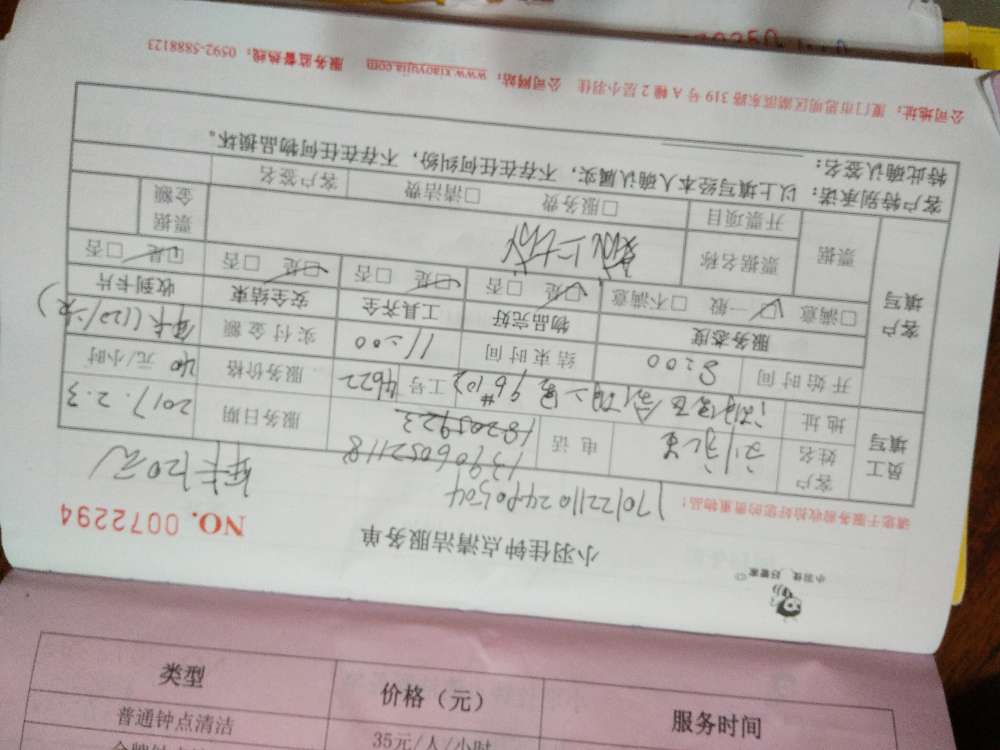 小羽佳 好管家
小羽佳钟点清洁服务单
NO. 0072294
请您于服务前收拾好您的贵重物品!
年卡120元
员工填写
客户姓名
电话
13906052118
服务日期 2017.2.3
地址
工号 4622
服务价格 40 元/小时
开始时间 8:00
结束时间 11:00
实付金额 年卡(120/次)
客户填写
服务态度
物品完好
工具齐全
安全结束
收到卡片
□满意 ☑一般 □不满意
☑是 □否
☑是 □否
☑是 □否
☑是 □否
票据
票据名称
票据金额
开票项目
□服务费 □清洁费
客户签名
客户特别承诺: 以上填写经本人确认属实,不存在任何纠纷,不存在任何物品损坏。
特此确认签名:
公司地址: 厦门市思明区湖滨东路 319 号 A 幢 2 层小羽佳 公司网站: www.xiaoyujia.com 服务监督热线: 0592-5888123
类型 价格(元) 服务时间
普通钟点清洁 35元/人/小时